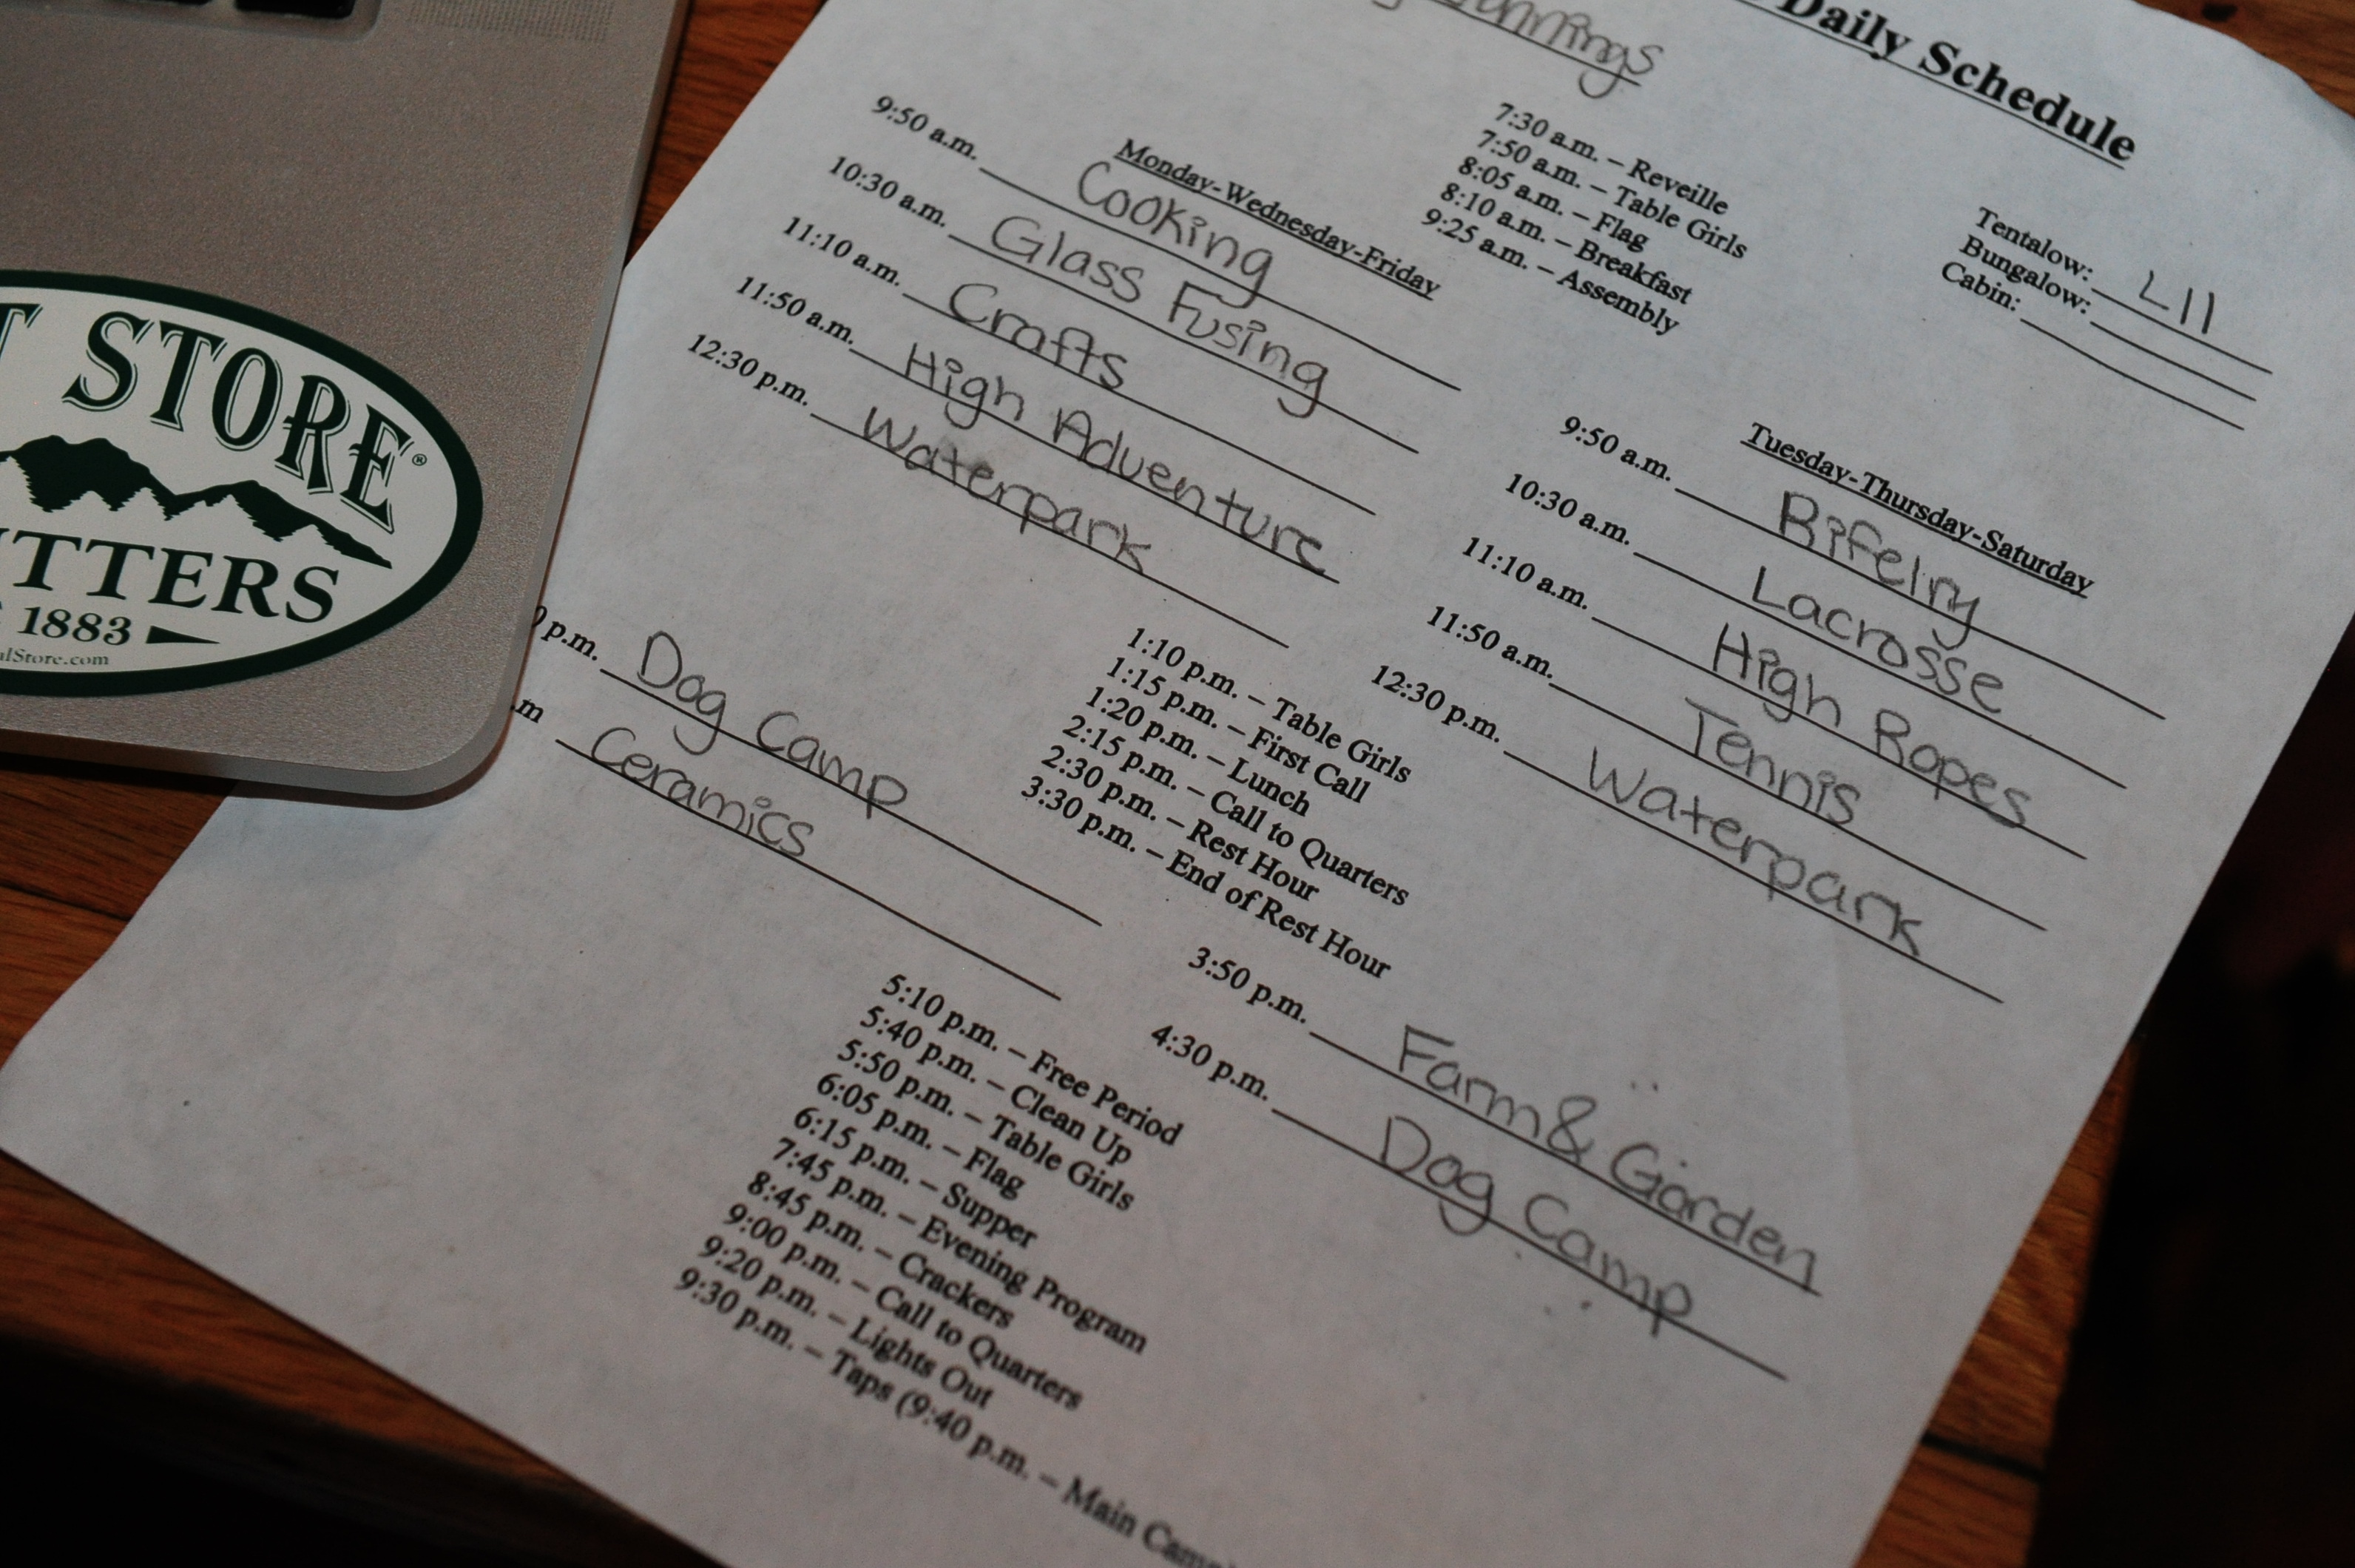 Daily Schedule
7:30 a.m. – Reveille
7:50 a.m. – Table Girls
8:05 a.m. – Flag
8:10 a.m. – Breakfast
9:25 a.m. – Assembly
Tentalow: L11
Bungalow:
Cabin:
Monday-Wednesday-Friday
9:50 a.m. Cooking
10:30 a.m. Glass Fusing
11:10 a.m. Crafts
11:50 a.m. High Adventure
12:30 p.m. Waterpark
Tuesday-Thursday-Saturday
9:50 a.m. Rifelry
10:30 a.m. Lacrosse
11:10 a.m. High Ropes
11:50 a.m. Tennis
12:30 p.m. Waterpark
1:10 p.m. – Table Girls
1:15 p.m. – First Call
1:20 p.m. – Lunch
2:15 p.m. – Call to Quarters
2:30 p.m. – Rest Hour
3:30 p.m. – End of Rest Hour
p.m. Dog Camp
.m Ceramics
3:50 p.m. Farm & Garden
4:30 p.m. Dog Camp
5:10 p.m. – Free Period
5:40 p.m. – Clean Up
5:50 p.m. – Table Girls
6:05 p.m. – Flag
6:15 p.m. – Supper
7:45 p.m. – Evening Program
8:45 p.m. – Crackers
9:00 p.m. – Call to Quarters
9:20 p.m. – Lights Out
9:30 p.m. – Taps (9:40 p.m. – Main Camp
STORE®
TTERS
1883
alStore.com